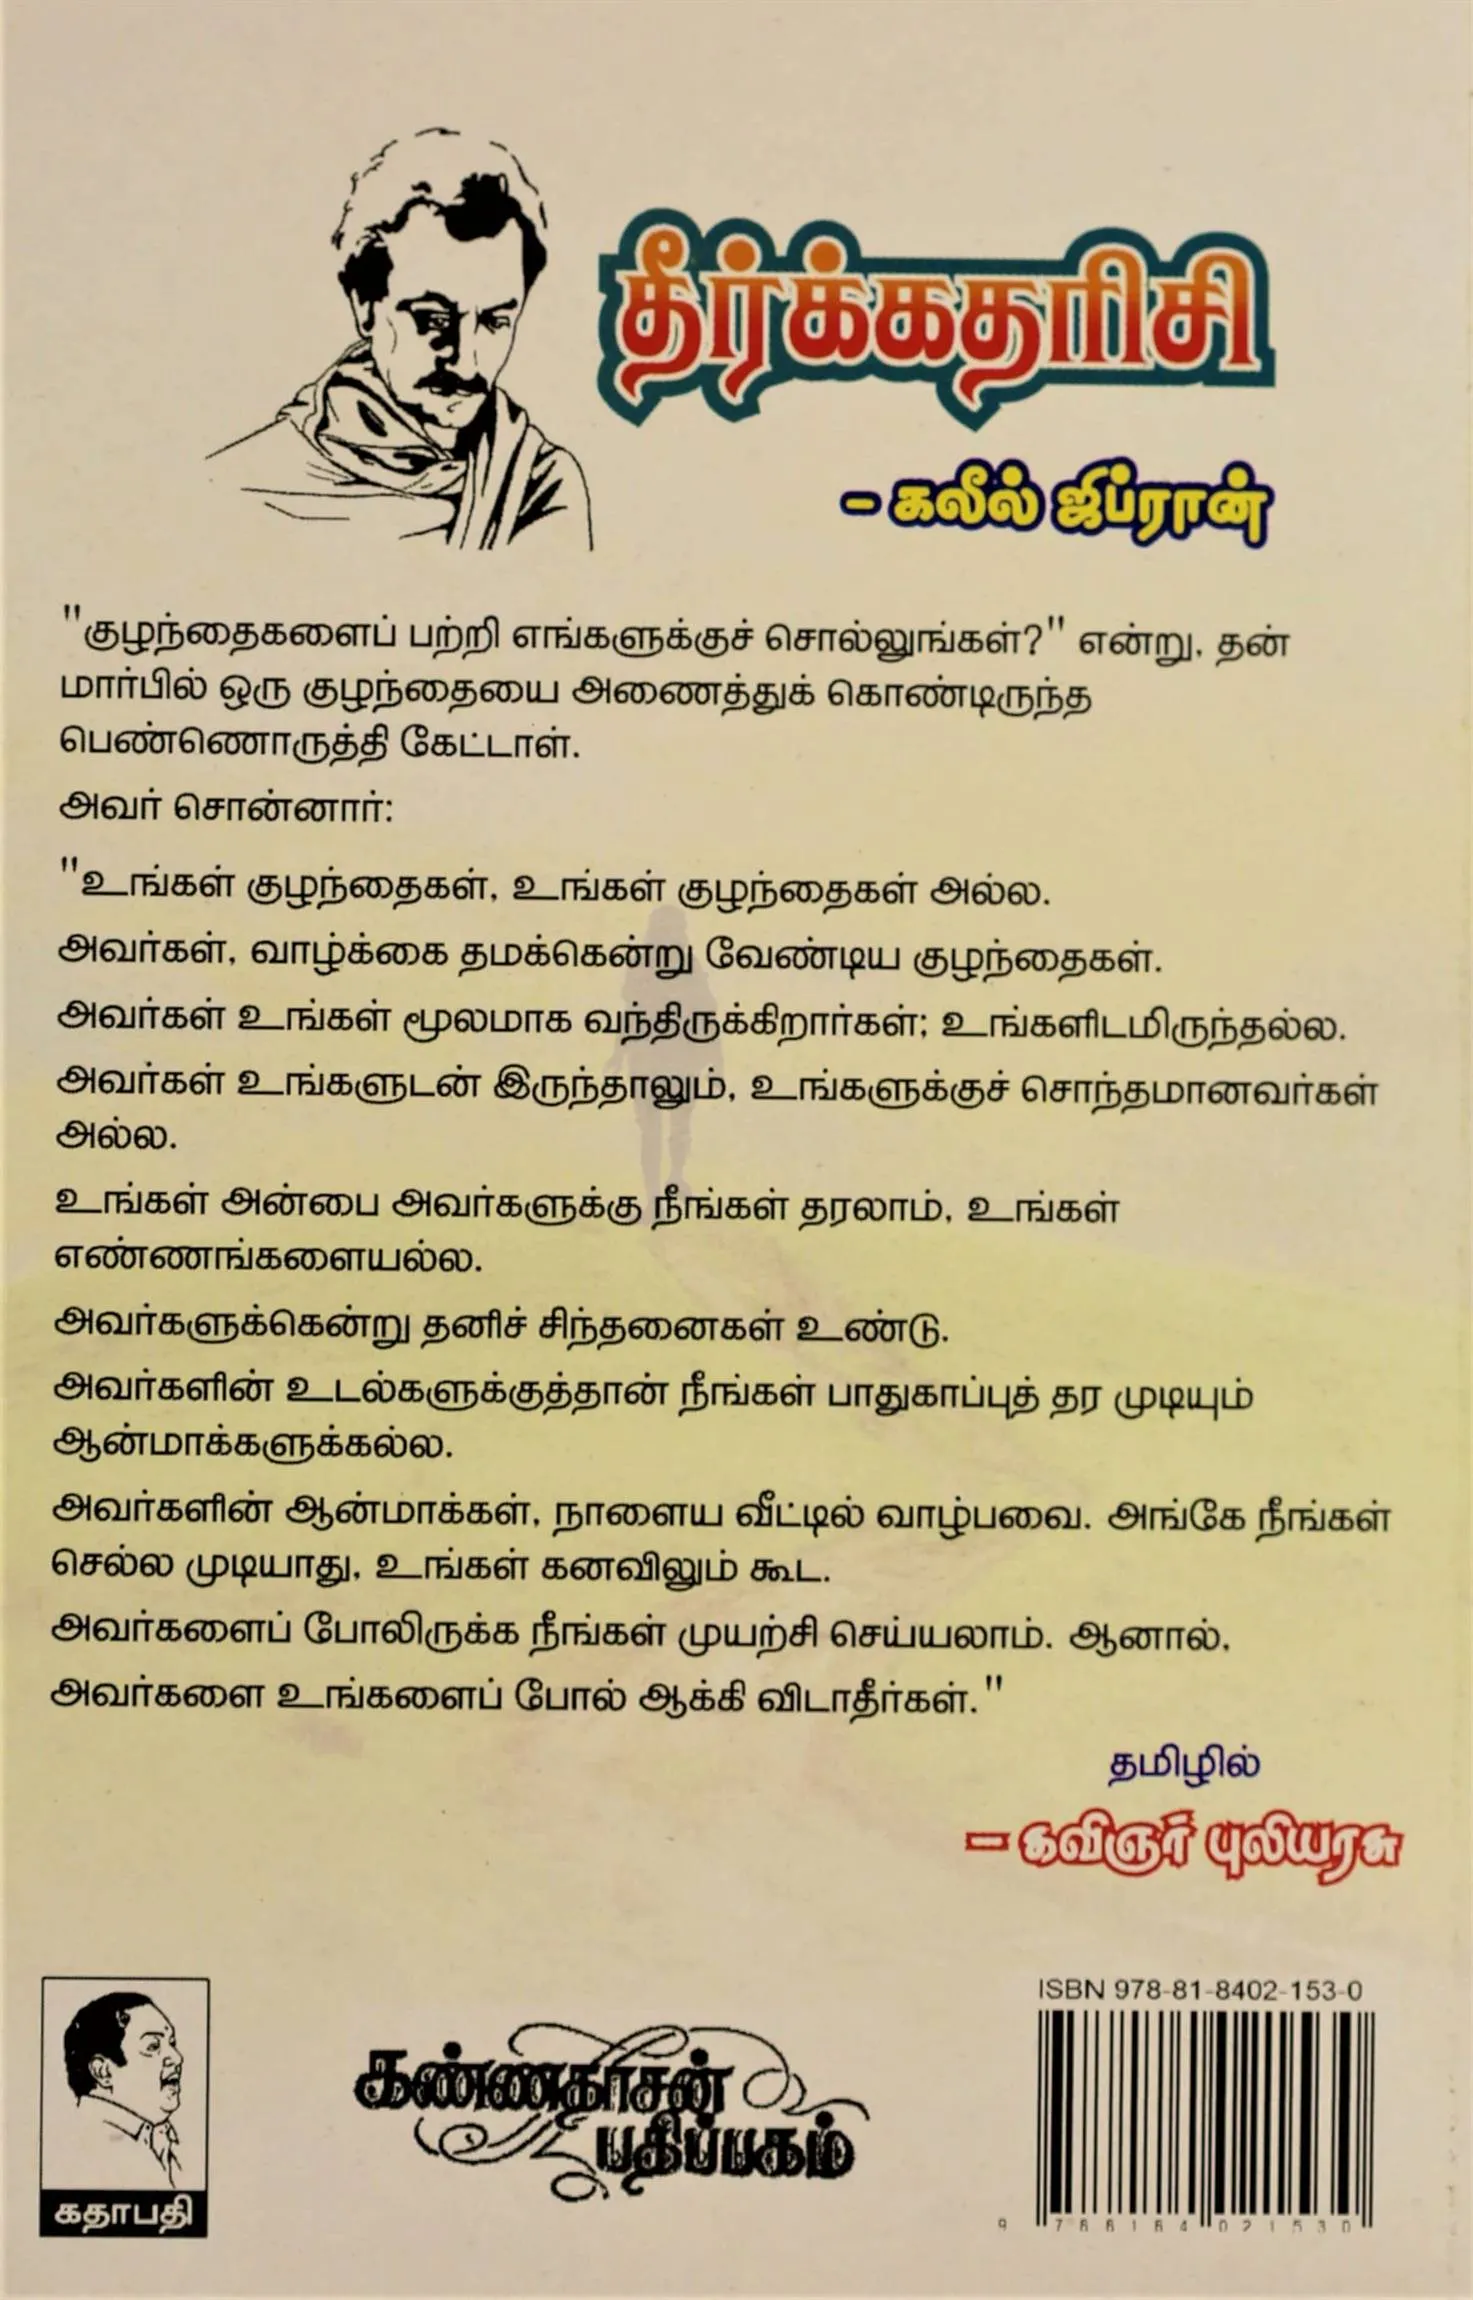 தீர்க்கதரிசி
- கலீல் ஜிப்ரான்
"குழந்தைகளைப் பற்றி எங்களுக்குச் சொல்லுங்கள்?" என்று, தன்
மார்பில் ஒரு குழந்தையை அணைத்துக் கொண்டிருந்த
பெண்ணொருத்தி கேட்டாள்.
அவர் சொன்னார்:
"உங்கள் குழந்தைகள், உங்கள் குழந்தைகள் அல்ல.
அவர்கள், வாழ்க்கை தமக்கென்று வேண்டிய குழந்தைகள்.
அவர்கள் உங்கள் மூலமாக வந்திருக்கிறார்கள்; உங்களிடமிருந்தல்ல.
அவர்கள் உங்களுடன் இருந்தாலும், உங்களுக்குச் சொந்தமானவர்கள்
அல்ல.
உங்கள் அன்பை அவர்களுக்கு நீங்கள் தரலாம், உங்கள்
எண்ணங்களையல்ல.
அவர்களுக்கென்று தனிச் சிந்தனைகள் உண்டு.
அவர்களின் உடல்களுக்குத்தான் நீங்கள் பாதுகாப்புத் தர முடியும்
ஆன்மாக்களுக்கல்ல.
அவர்களின் ஆன்மாக்கள், நாளைய வீட்டில் வாழ்பவை. அங்கே நீங்கள்
செல்ல முடியாது, உங்கள் கனவிலும் கூட.
அவர்களைப் போலிருக்க நீங்கள் முயற்சி செய்யலாம். ஆனால்,
அவர்களை உங்களைப் போல் ஆக்கி விடாதீர்கள்."
தமிழில்
- கவிஞர் புலியரசு
கதாபதி
கண்ணதாசன்
பதிப்பகம்
ISBN 978-81-8402-153-0
9 788184 021530